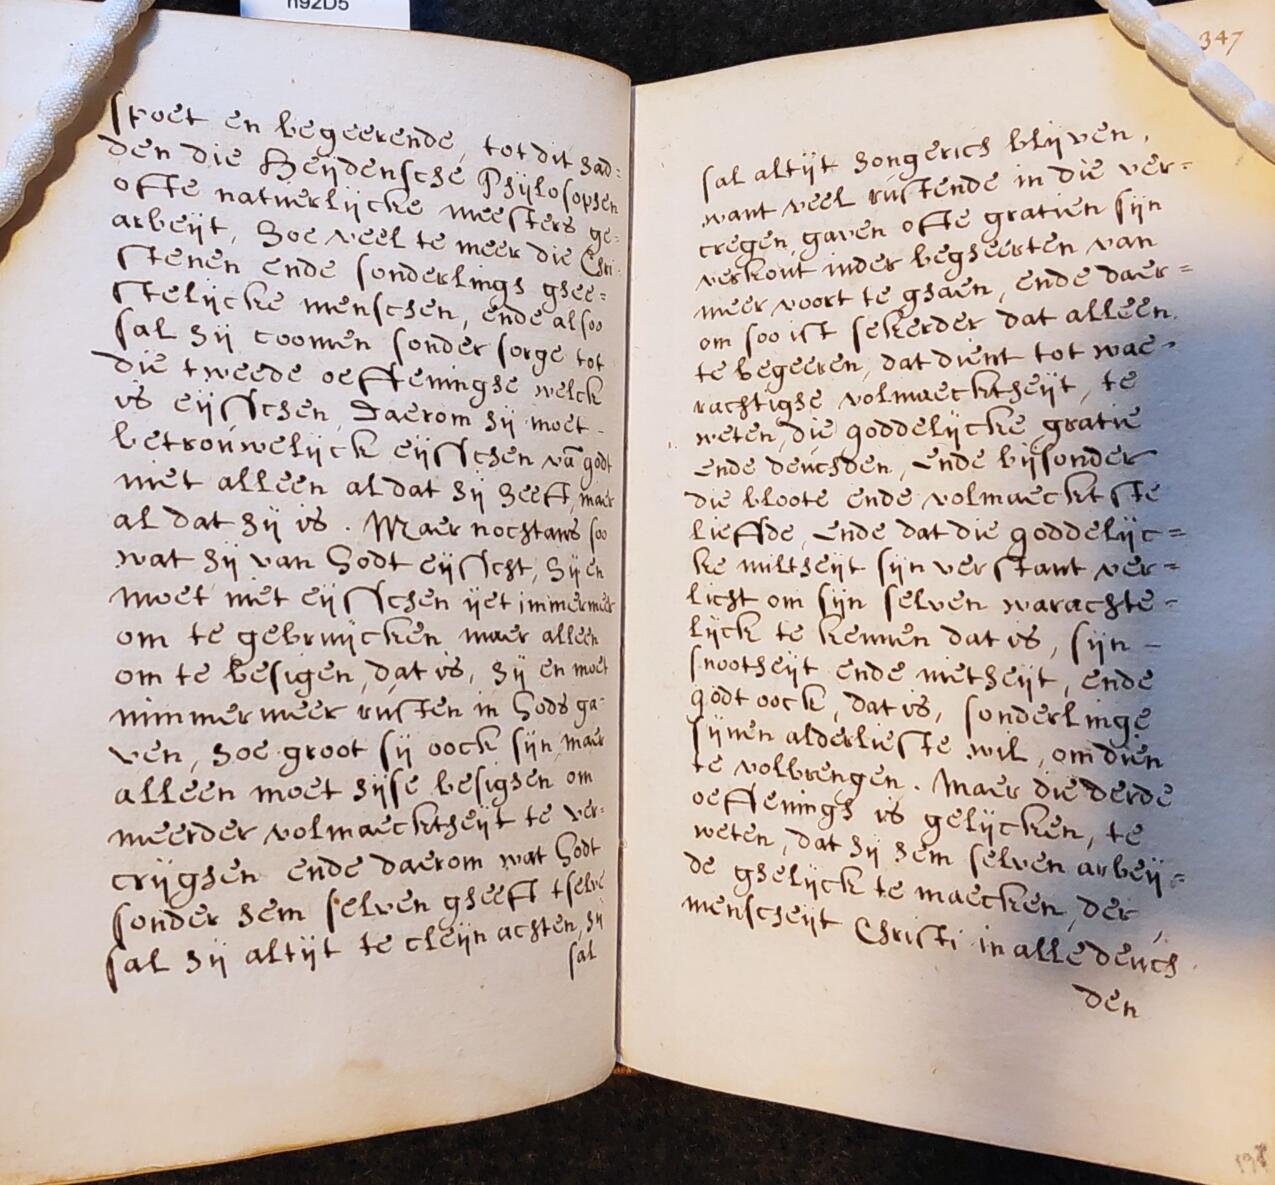 h92D5
spoet en begeerende, tot dit had:
den die Heijdensche Philosophen
ofte natuerlijcke meesters ge:
arbeijt, Hoe veel te meer die Chri:
stenen ende sonderlingh ghee:
stelijcke menschen, ende alsoo
sal hij coomen sonder sorge tot
die tweede oeffeninghe welck
is eijsschen, Daerom hij moet -
betrouwelijck eijsschen vā godt
niet alleen al dat hij heeft, maer
al dat hij is. Maer nochtans soo
wat hij van Godt eijscht, Hij en
moet niet eijsschen ijet immermeer
om te gebruijcken maer alleen
om te besigen, dat is, hij en moet
nimmermeer rusten in Gods ga-
ven, hoe groot sij oock sijn, maer
alleen moet hijse besighen om
meerder volmaecktheijt te ver:
crijghen ende daerom wat Godt
sonder hem selven gheeft tselve
sal hij altijt te cleijn achten, hij
sal
347
sal altijt hongerich blijven,
want veel rustende in die ver=
cregen gaven ofte gratien sijn
verkout inder begheerten van
meer voort te ghaen, ende daer=
om soo ist sekerder dat alleen
te begeeren, dat dient tot wae=
rachtighe volmaecktheijt, te
weten, die goddelijcke gratie
ende deuchden, ende bijsonder
die bloote ende volmaecktste
lieffde, ende dat die goddelijc=
ke miltheijt sijn verstant ver=
licht om sijn selven warachte=
lijck te kennen dat is, sijn -
snootheijt ende nietheijt, ende
godt oock, dat is, sonderlinge
sijnen alderlieste wil, om dien
te volbrengen. Maer die derde
oeffeningh is gelijcken, te
weten, dat hij hem selven arbeij=
de ghelijck te maecken, der
menscheijt Christi in alle deuch
den